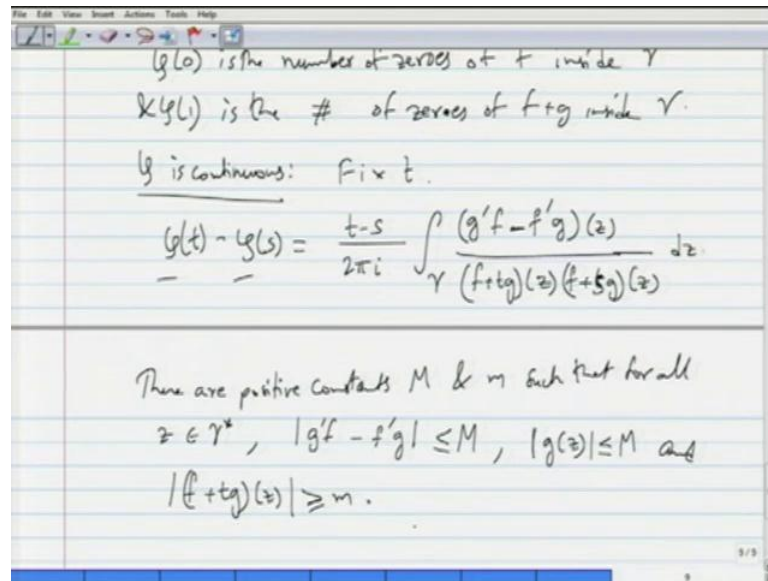 File Edit View Insert Actions Tools Help
φ(0) is the number of zeroes of f inside γ
& φ(1) is the # of zeroes of f+g inside γ.
φ is continuous: Fix t.
φ(t) - φ(s) = \frac{t-s}{2πi} ∫_γ \frac{(g'f - f'g)(z)}{(f+tg)(z)(f+sg)(z)} dz
There are positive constants M & m such that for all
z ∈ γ*, |g'f - f'g| ≤ M, |g(z)| ≤ M and
|(f+tg)(z)| ≥ m.
5/5
9